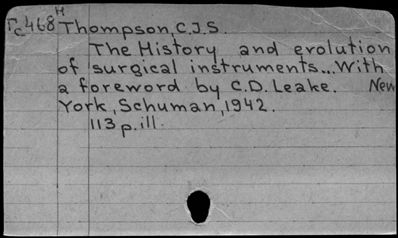 Γc468H Thompson, C.J.S.
The History and evolution
of surgical instruments...With
a foreword by C.D. Leake. New
York, Schuman, 1942.
113 p. ill.